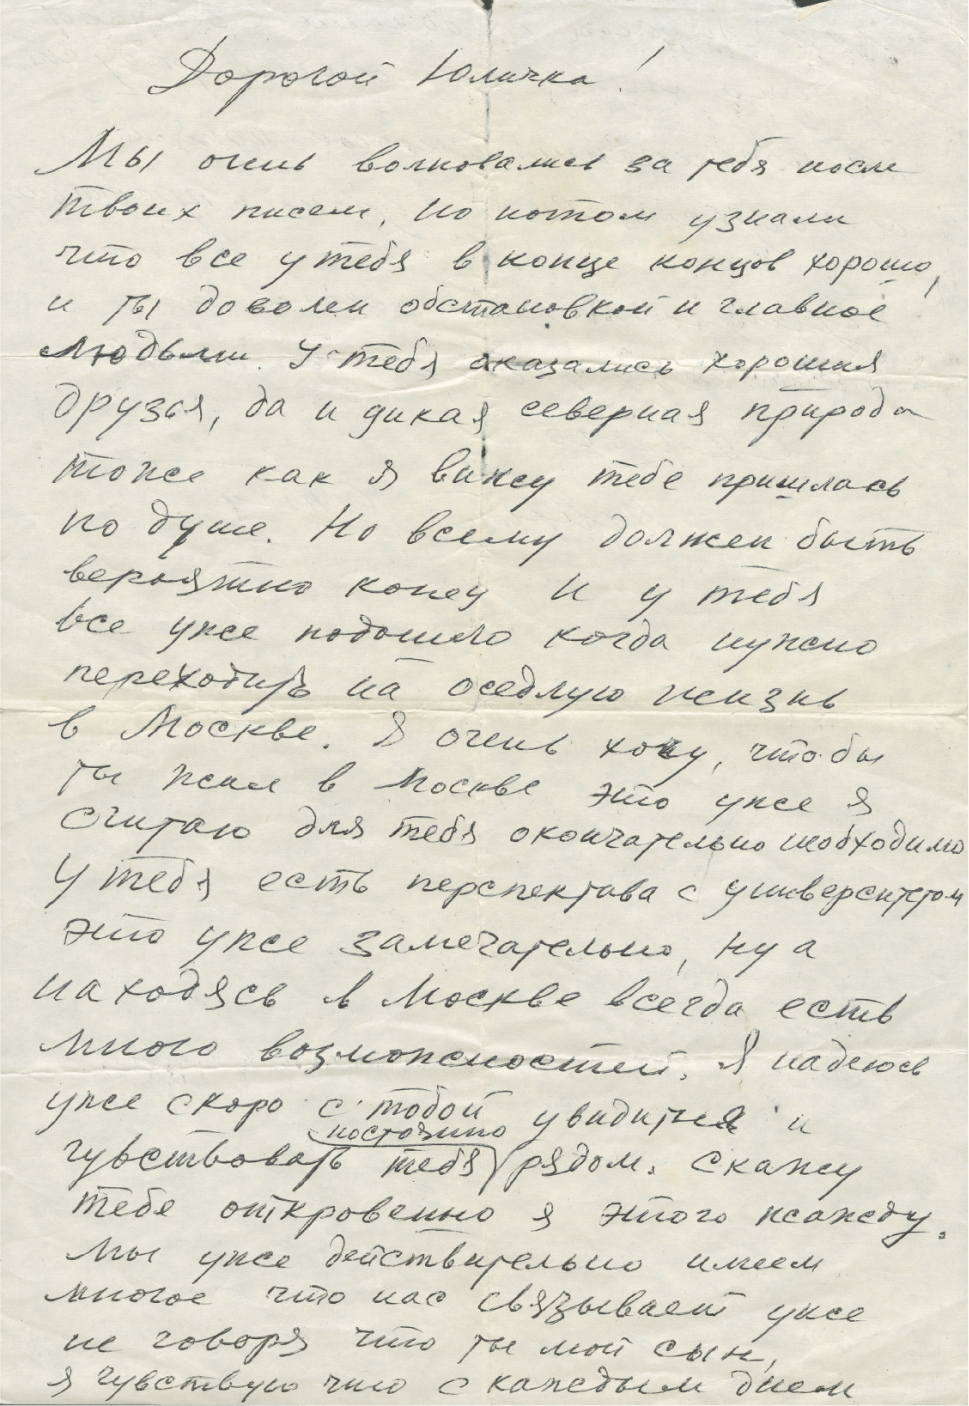 Дорогой Юличка!
Мы очень волновались за тебя после
твоих писем, но потом узнали
что все у тебя в конце концов хорошо,
и ты доволен обстановкой и главное
людьми. У тебя оказались хорошия
друзья, да и дикая северная природа
тоже как я вижу тебе пришлась
по душе. Но всему должен быть
вероятно конец И у тебя
все уже подошло когда нужно
переходить на оседлую жизнь
в Москве. Я очень хочу, чтобы
ты жил в Москве это уже я
считаю для тебя окончательно необходимо
У тебя есть перспектива с университетом
это уже замечательно, ну а
находясь в Москве всегда есть
много возможностей. Я надеюсь
уже скоро с тобой увидится и
постоянно
чувствовать тебя рядом. Скажу
тебе откровенно я этого жажду.
Мы уже действительно имеем
многое что нас связывает уже
не говоря что ты мой сын,
я чувствую что с каждым днем